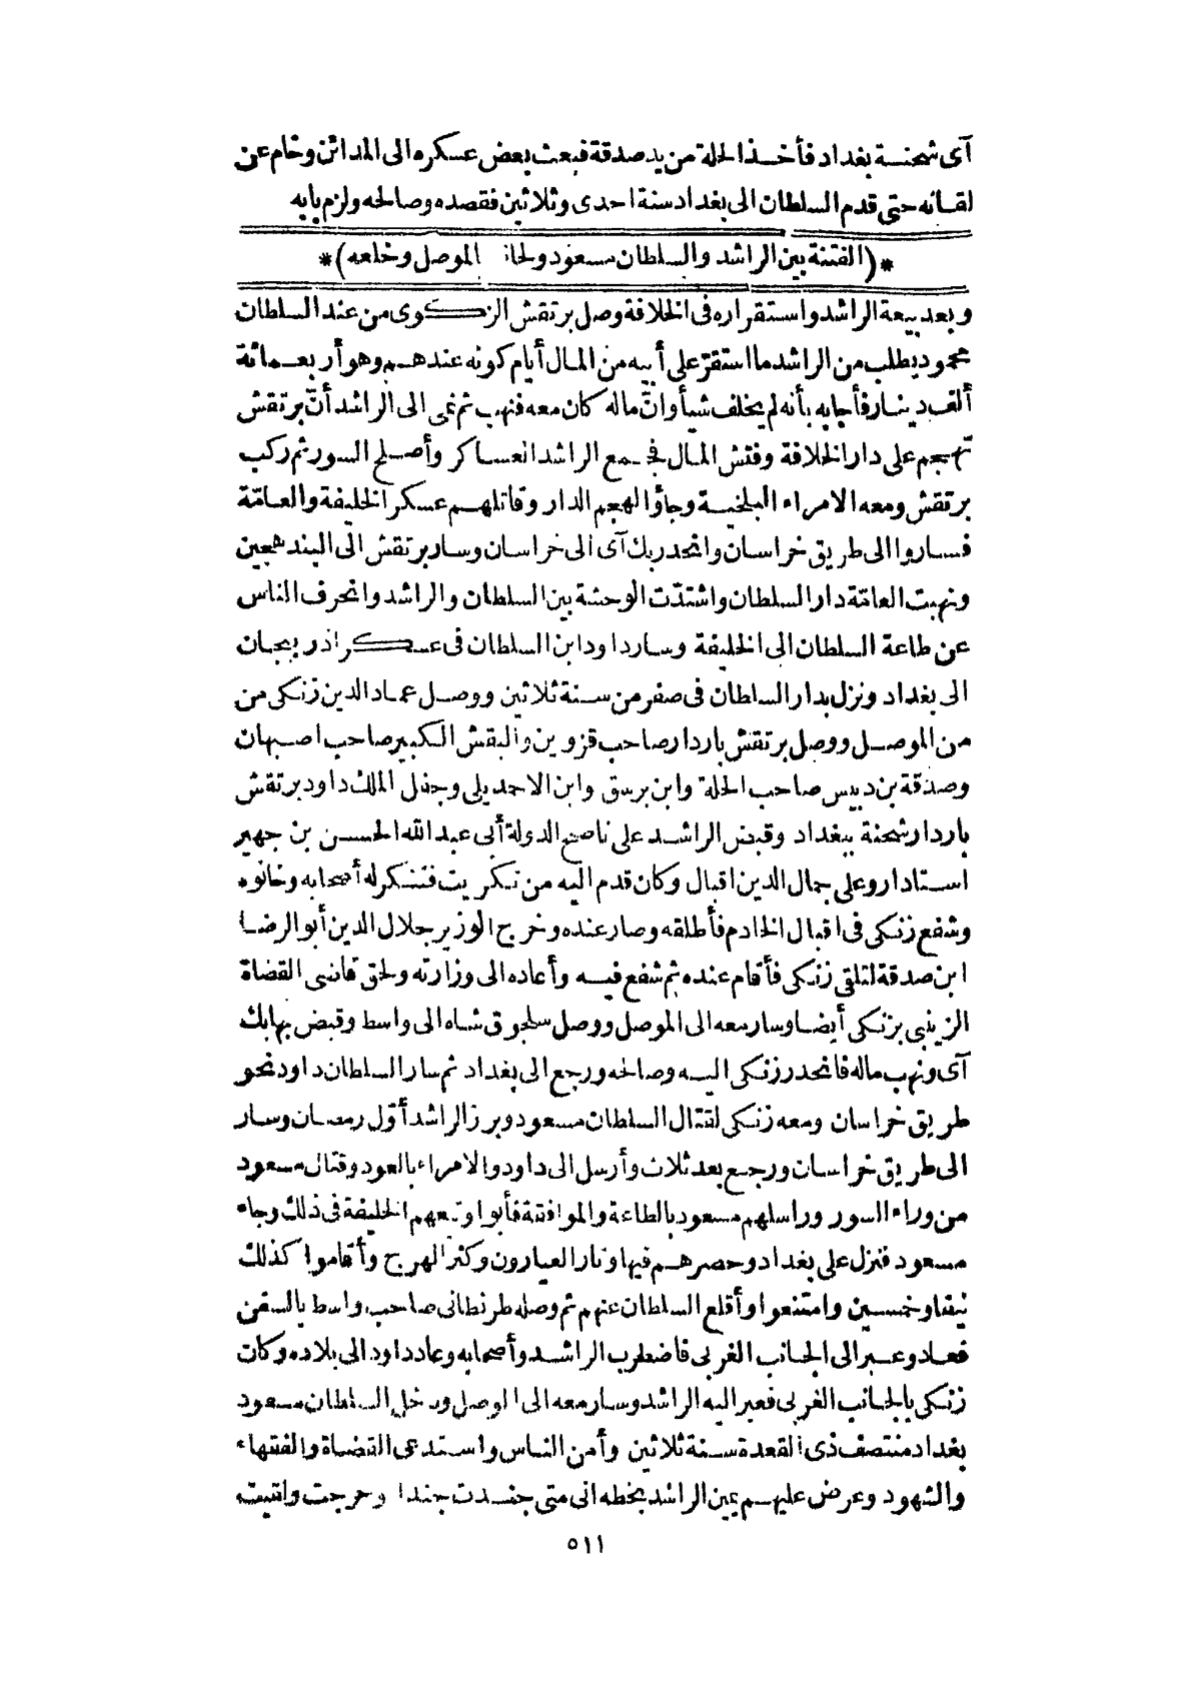 آى شحنة بغداد فأخذ الحلة من يد صدقة فبعث بعض عسكره الى المدائن وخام عن
لقائه حتى قدم السلطان الى بغداد سنة احدى وثلاثين فقصده وصالحه ولزم بابه
*(الفتنة بين الراشد والسلطان مسعود ولحاقه الموصل وخلعه)*
وبعد بيعة الراشد واستقراره فى الخلافة وصل برتقش الزكوى من عند السلطان
محمود يطلب من الراشد ما استقرّ على أبيه من المال أيام كونه عندهم وهو أربعمائة
ألف دينار فأجابه بأنه لم يخلف شيأ وانّ ماله كان معه فنهب ثم نمى الى الراشد أنّ برتقش
تهجم على دار الخلافة وفتش المال فجمع الراشد العساكر وأصلح السور ثم ركب
برتقش ومعه الامراء البلخية وجاؤا لهجم الدار وقاتلهم عسكر الخليفة والعامّة
فساروا الى طريق خراسان وانحدر بك آى الى خراسان وسار برتقش الى البندهجين
ونهبت العامّة دار السلطان واشتدّت الوحشة بين السلطان والراشد وانحرف الناس
عن طاعة السلطان الى الخليفة وسار داود ابن السلطان فى عسكر اذربيجان
الى بغداد ونزل بدار السلطان فى صفر من سنة ثلاثين ووصل عماد الدين زنكى من
من الموصل ووصل برتقش باردار صاحب قزوين والبقش الكبير صاحب اصبهان
وصدقة بن دبيس صاحب الحلة وابن برسق وابن الاحمديلى وجفل الملك داود برتقش
باردار شحنة ببغداد وقبض الراشد على ناصح الدولة أبى عبد الله الحسن بن جهير
استادار وعلى جمال الدين اقبال وكان قدم اليه من تكريت فتنكر له أصحابه وخافوه
وشفع زنكى فى اقبال الخادم فأطلقه وصار عنده وخرج الوزير جلال الدين أبو الرضا
ابن صدقة لتلقى زنكى فأقام عنده ثم شفع فيه وأعاده الى وزارته ولحق قاضى القضاة
الزينبى بزنكى أيضا وسار معه الى الموصل ووصل سلجوق شاه الى واسط وقبض بها بك
آى ونهب ماله فانحدر زنكى اليه وصالحه ورجع الى بغداد ثم سار السلطان داود نحو
طريق خراسان ومعه زنكى لقتال السلطان مسعود وبرز الراشد أوّل رمضان وسار
الى طريق خراسان ورجع بعد ثلاث وأرسل الى داود والامراء بالعود وقتال مسعود
من وراء السور وراسلهم مسعود بالطاعة والموافقة فأبوا وتبعهم الخليفة فى ذلك وجاء
مسعود فنزل على بغداد وحصرهم فيها وثار العيارون وكثر الهرج وأقاموا كذلك
نيفا وخمسين وامتنعوا وأقلع السلطان عنهم ثم وصله طرنطاى صاحب واسط بالسفن
فعاد وعبر الى الجانب الغربى فاضطرب الراشد وأصحابه وعاد داود الى بلاده وكان
زنكى بالجانب الغربى فعبر اليه الراشد وسار معه الى الموصل ودخل السلطان مسعود
بغداد منتصف ذى القعدة سنة ثلاثين وأمن الناس واستدعى القضاة والفقهاء
والشهود وعرض عليهم يمين الراشد بخطه انى متى جندت جندا وخرجت ولقيت
٥١١